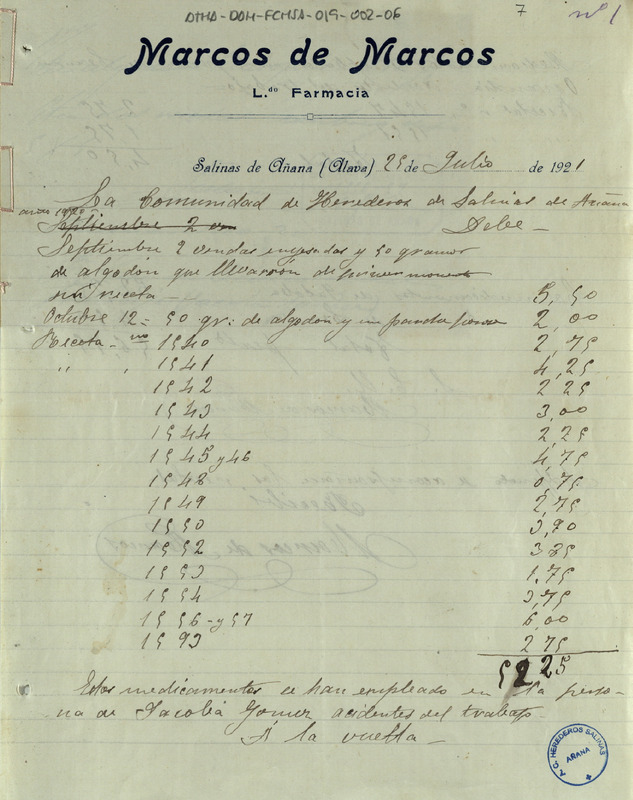 ATHA-DAH-FCMSA-019-002-06
7
nº 1
Marcos de Marcos
L.do Farmacia
Salinas de Añana (Alava) 25 de Julio de 1921
La Comunidad de Herederos de Salinas de Añana
1920
Septiembre 2 Debe -
Septiembre 2 vendas enyesadas y 50 gramos
de algodón que llevarón de primer momento
sin receta - 5,50
Octubre 12 = 50 gr: de algodón y un 2,00
Receta - nº 1540 2,75
" " 1541 4,25
1542 2 25
1543 3,00
1544 2,25
1545 y 46 4,75
1548 0,75
1549 2,75
1550 3,90
1552 3 35
1553 1,75
1554 3,75
1556 - y 57 6,00
1593 2 75
52 25
Estos medicamentos se han empleado en la perso-
na de Jacoba Gomez acidentes del trabajo.
Á la vuelta -
C. HEREDEROS SALINAS
AÑANA